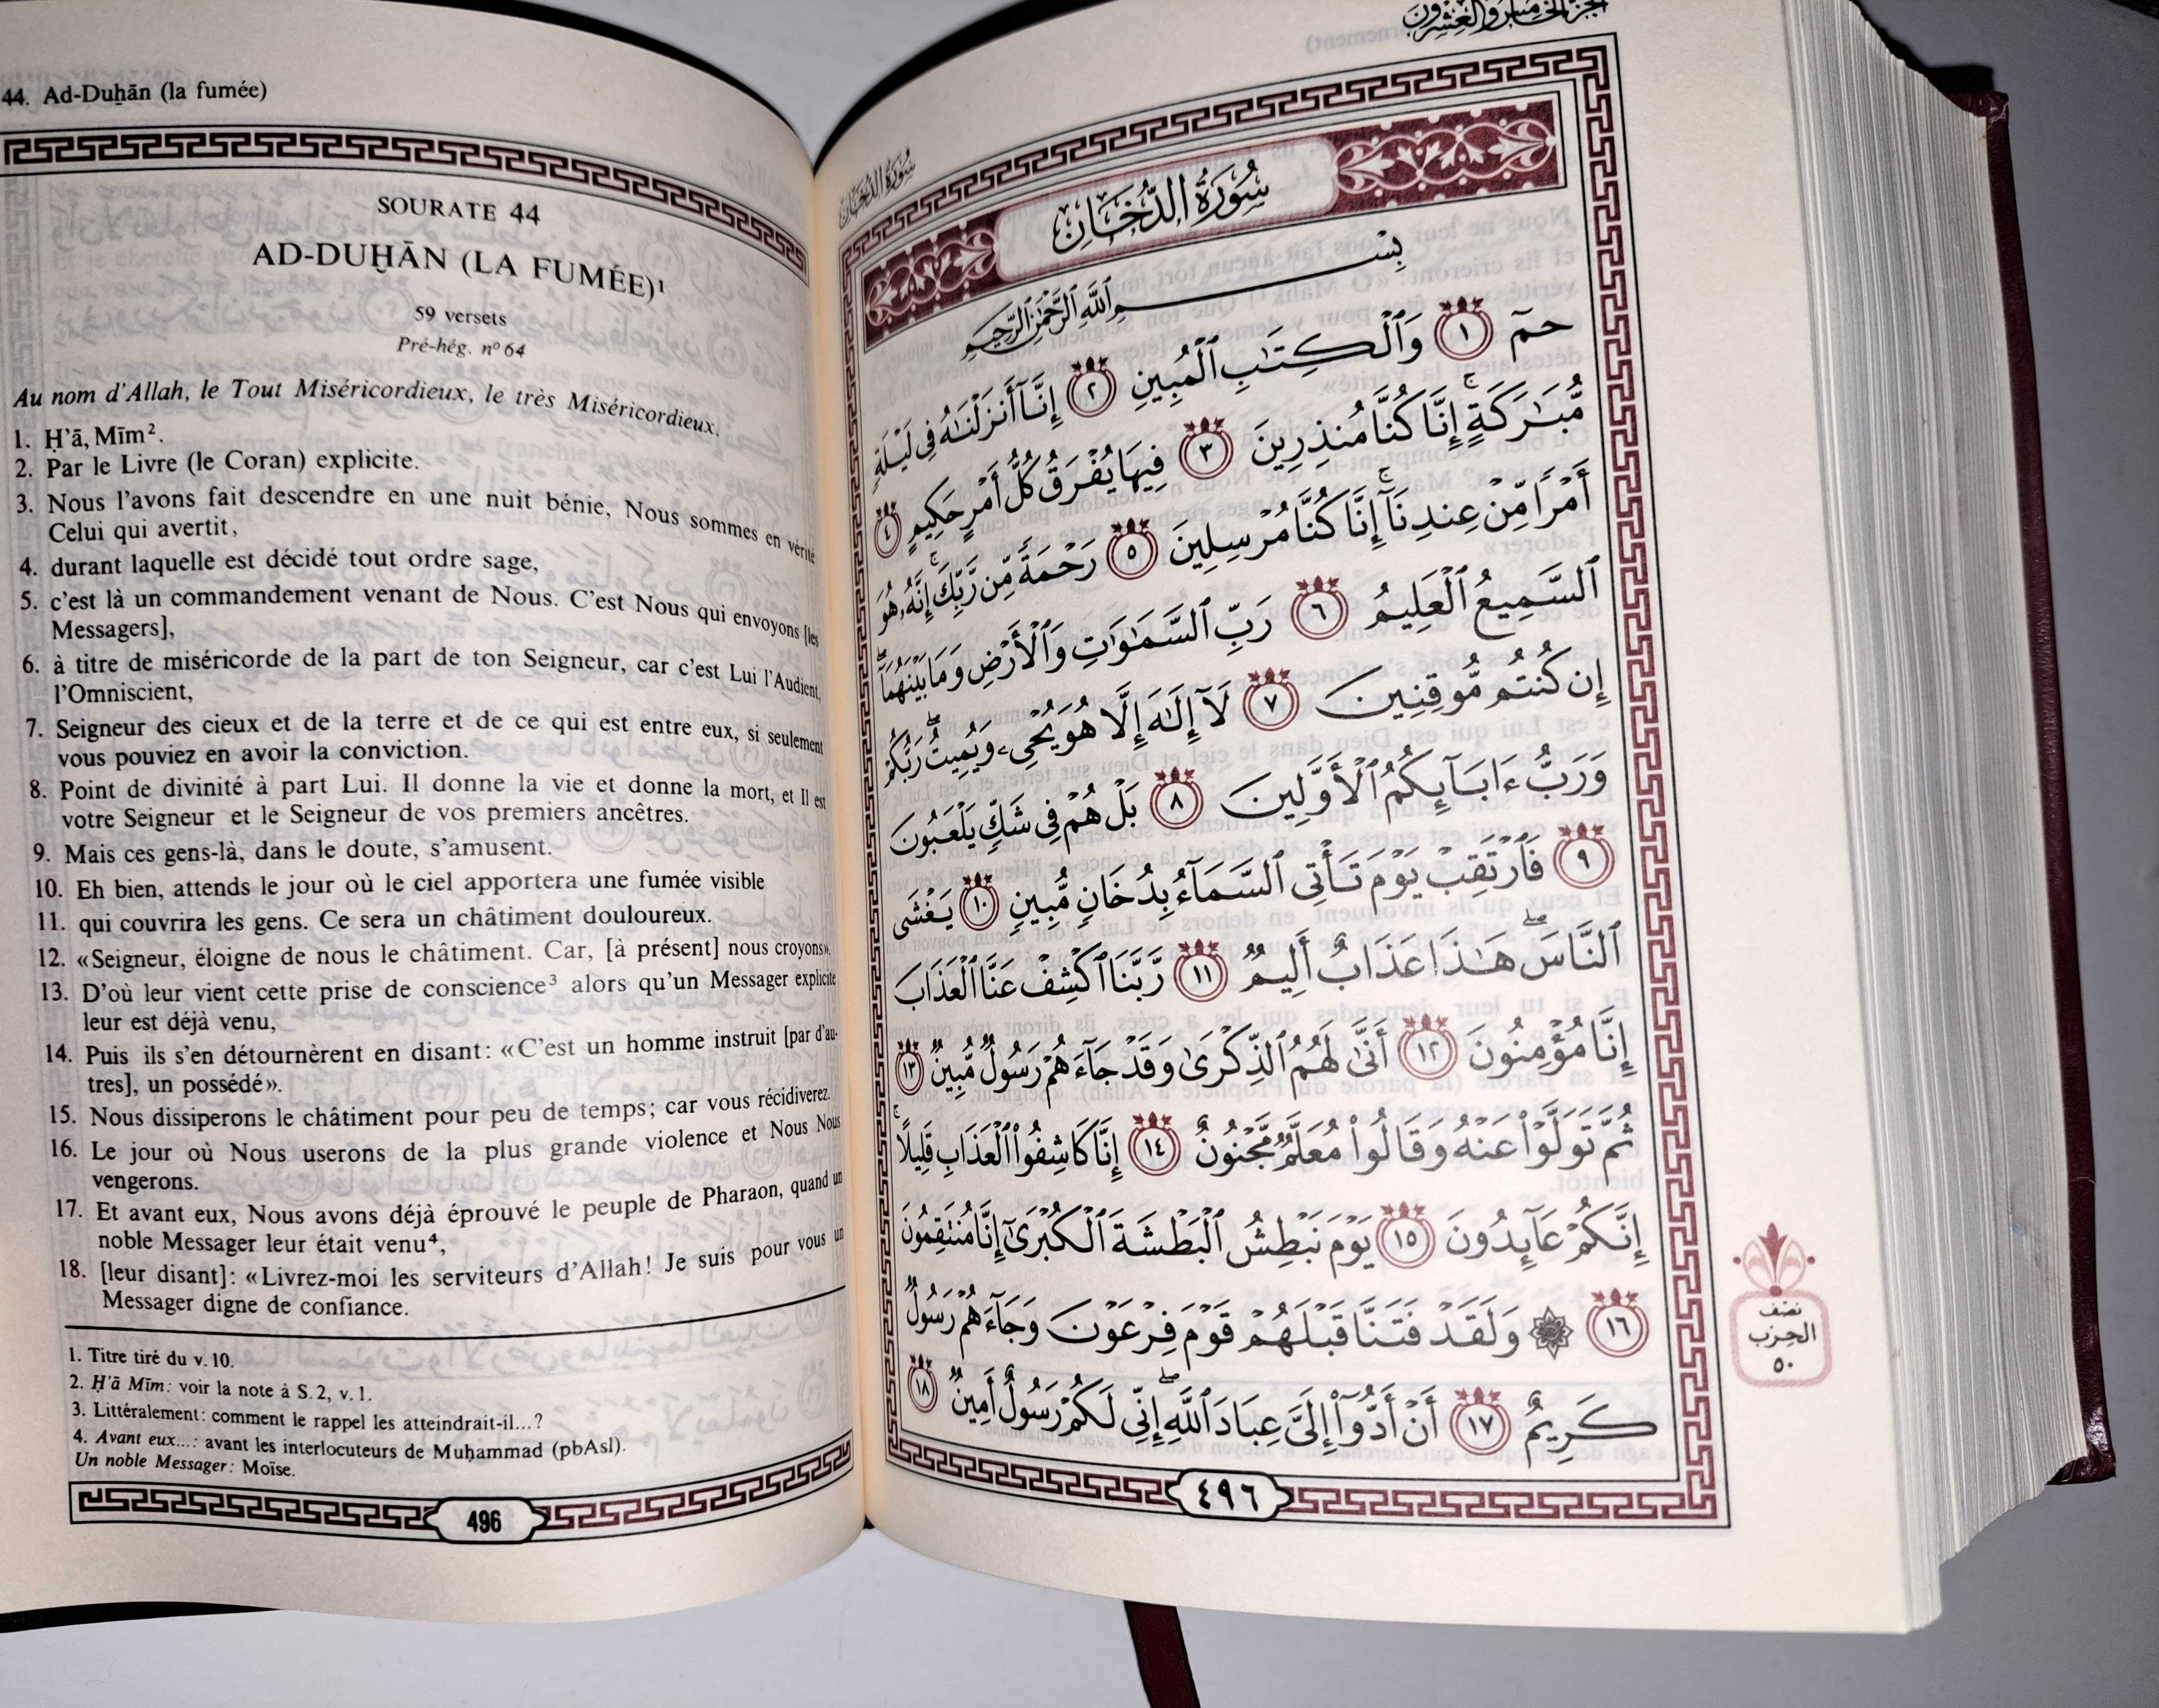 44. Ad-Duẖān (la fumée)
SOURATE 44
AD-DUẖĀN (LA FUMÉE)¹
59 versets
Pré-hég. nº 64
Au nom d'Allah, le Tout Miséricordieux, le très Miséricordieux.
1. Ḥ'ā, Mīm².
2. Par le Livre (le Coran) explicite.
3. Nous l'avons fait descendre en une nuit bénie, Nous sommes en vérité
Celui qui avertit,
4. durant laquelle est décidé tout ordre sage,
5. c'est là un commandement venant de Nous. C'est Nous qui envoyons [les
Messagers],
6. à titre de miséricorde de la part de ton Seigneur, car c'est Lui l'Audient,
l'Omniscient,
7. Seigneur des cieux et de la terre et de ce qui est entre eux, si seulement
vous pouviez en avoir la conviction.
8. Point de divinité à part Lui. Il donne la vie et donne la mort, et Il est
votre Seigneur et le Seigneur de vos premiers ancêtres.
9. Mais ces gens-là, dans le doute, s'amusent.
10. Eh bien, attends le jour où le ciel apportera une fumée visible
11. qui couvrira les gens. Ce sera un châtiment douloureux.
12. «Seigneur, éloigne de nous le châtiment. Car, [à présent] nous croyons».
13. D'où leur vient cette prise de conscience³ alors qu'un Messager explicite
leur est déjà venu,
14. Puis ils s'en détournèrent en disant: «C'est un homme instruit [par d'au-
tres], un possédé».
15. Nous dissiperons le châtiment pour peu de temps; car vous récidiverez.
16. Le jour où Nous userons de la plus grande violence et Nous Nous
vengerons.
17. Et avant eux, Nous avons déjà éprouvé le peuple de Pharaon, quand un
noble Messager leur était venu⁴,
18. [leur disant]: «Livrez-moi les serviteurs d'Allah! Je suis pour vous un
Messager digne de confiance.
1. Titre tiré du v. 10.
2. Ḥ'ā Mīm: voir la note à S. 2, v. 1.
3. Littéralement: comment le rappel les atteindrait-il...?
4. Avant eux...: avant les interlocuteurs de Muḥammad (pbAsl).
Un noble Messager: Moïse.
496
الجزء الخامس والعشرون
سُورَةُ الدُّخَان
سُورَةُ الدُّخَان
بِسْمِ اللَّهِ الرَّحْمَٰنِ الرَّحِيمِ
حمٓ ١ وَٱلْكِتَٰبِ ٱلْمُبِينِ ٢ إِنَّآ أَنزَلْنَٰهُ فِى لَيْلَةٍ
مُّبَٰرَكَةٍ ۚ إِنَّا كُنَّا مُنذِرِينَ ٣ فِيهَا يُفْرَقُ كُلُّ أَمْرٍ حَكِيمٍ ٤
أَمْرًا مِّنْ عِندِنَآ ۚ إِنَّا كُنَّا مُرْسِلِينَ ٥ رَحْمَةً مِّن رَّبِّكَ ۚ إِنَّهُۥ هُوَ
ٱلسَّمِيعُ ٱلْعَلِيمُ ٦ رَبِّ ٱلسَّمَٰوَٰتِ وَٱلْأَرْضِ وَمَا بَيْنَهُمَآ ۖ
إِن كُنتُم مُّوقِنِينَ ٧ لَآ إِلَٰهَ إِلَّا هُوَ يُحْىِۦ وَيُمِيتُ ۖ رَبُّكُمْ
وَرَبُّ ءَابَآئِكُمُ ٱلْأَوَّلِينَ ٨ بَلْ هُمْ فِى شَكٍّ يَلْعَبُونَ
٩ فَٱرْتَقِبْ يَوْمَ تَأْتِى ٱلسَّمَآءُ بِدُخَانٍ مُّبِينٍ ١٠ يَغْشَى
ٱلنَّاسَ ۖ هَٰذَا عَذَابٌ أَلِيمٌ ١١ رَّبَّنَا ٱكْشِفْ عَنَّا ٱلْعَذَابَ
إِنَّا مُؤْمِنُونَ ١٢ أَنَّىٰ لَهُمُ ٱلذِّكْرَىٰ وَقَدْ جَآءَهُمْ رَسُولٌ مُّبِينٌ ١٣
ثُمَّ تَوَلَّوْا۟ عَنْهُ وَقَالُوا۟ مُعَلَّمٌ مَّجْنُونٌ ١٤ إِنَّا كَاشِفُوا۟ ٱلْعَذَابِ قَلِيلًا ۚ
إِنَّكُمْ عَآئِدُونَ ١٥ يَوْمَ نَبْطِشُ ٱلْبَطْشَةَ ٱلْكُبْرَىٰٓ إِنَّا مُنتَقِمُونَ
١٦ ۞ وَلَقَدْ فَتَنَّا قَبْلَهُمْ قَوْمَ فِرْعَوْنَ وَجَآءَهُمْ رَسُولٌ
كَرِيمٌ ١٧ أَنْ أَدُّوٓا۟ إِلَىَّ عِبَادَ ٱللَّهِ ۖ إِنِّى لَكُمْ رَسُولٌ أَمِينٌ ١٨
نصف
الحزب
٥٠
٤٩٦